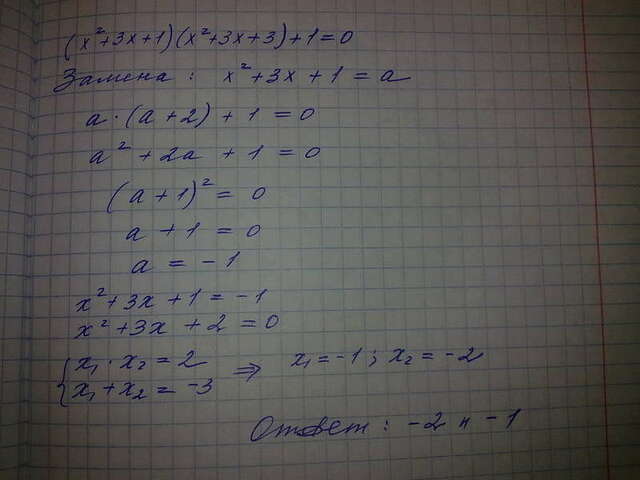 (x²+3x+1)(x²+3x+3)+1=0
Замена: x²+3x+1=a
a·(a+2)+1=0
a²+2a+1=0
(a+1)²=0
a+1=0
a=-1
x²+3x+1=-1
x²+3x+2=0
{x₁·x₂=2 ⇒ x₁=-1; x₂=-2
x₁+x₂=-3
Ответ: -2 и -1